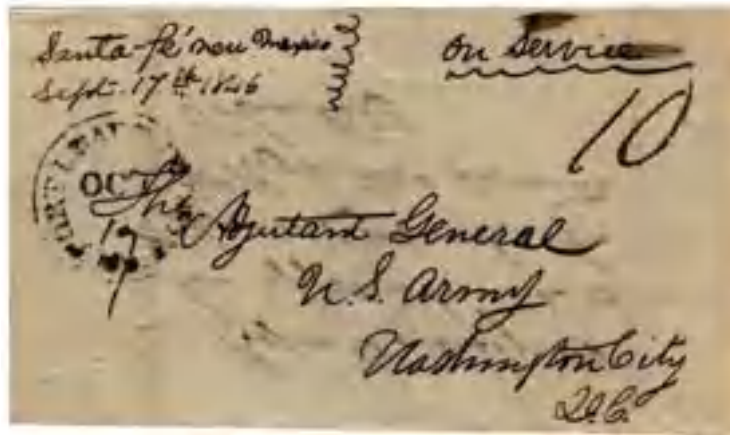 Santa-fé new Mexico
Sept. 17th 1846
on Service
10
OCT
17
The Adjutant General
U.S. Army
Washington City
D.C.